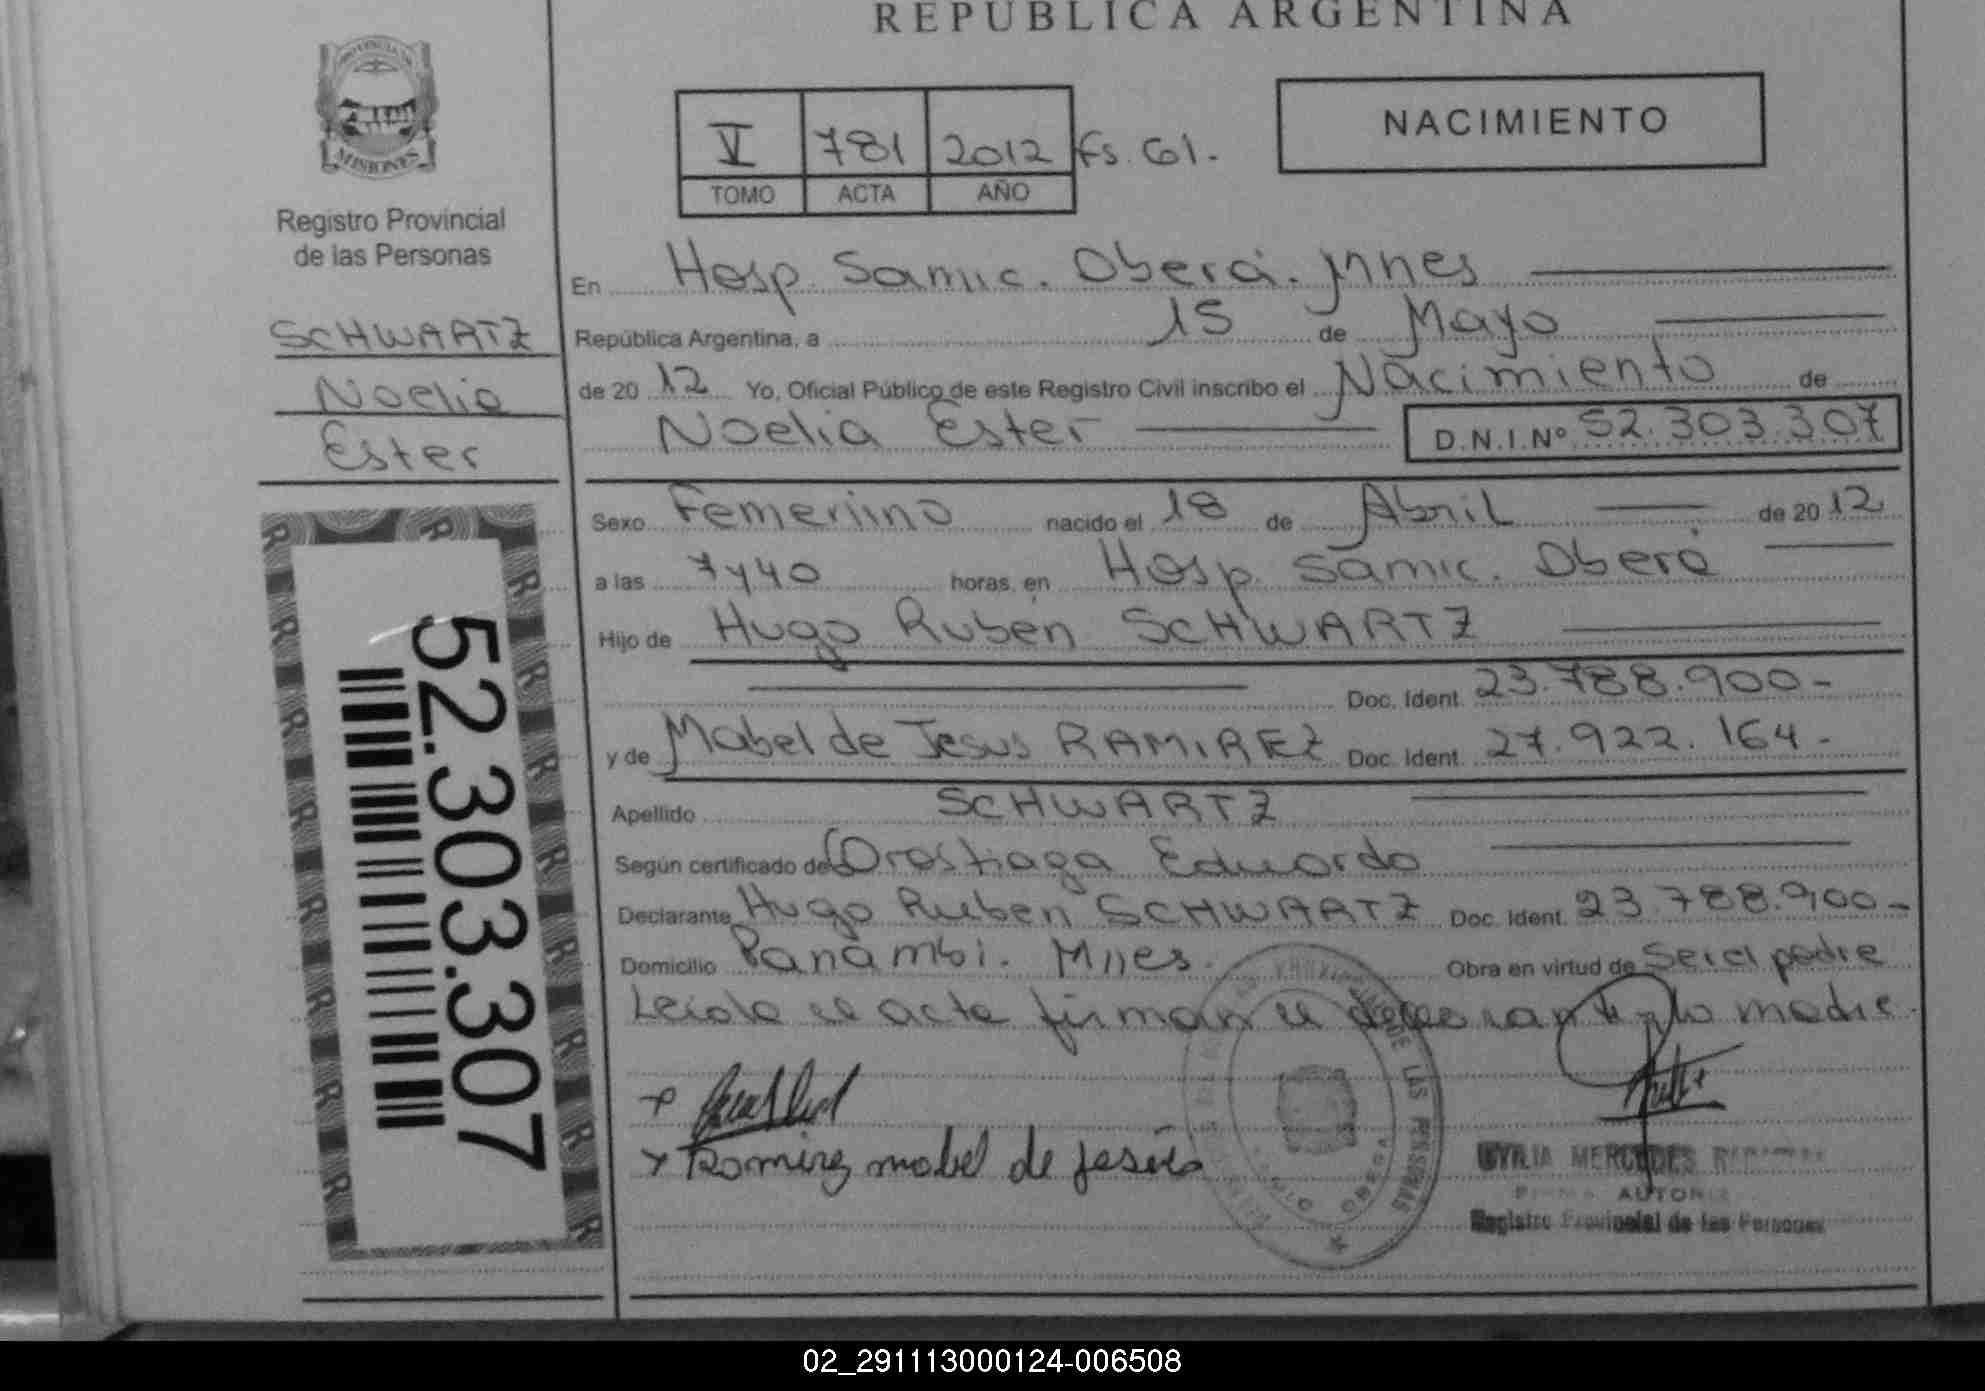 REPUBLICA ARGENTINA
PROVINCIA DE
MISIONES
Registro Provincial
de las Personas
SCHWARTZ
Noelia
Ester
52.303.307
V 781 2012 Fs. 61.
TOMO ACTA AÑO
NACIMIENTO
En Hosp. Samic. Oberá. Mnes
República Argentina, a 15 de Mayo
de 20 12 Yo, Oficial Público de este Registro Civil inscribo el Nacimiento de
Noelia Ester D.N.I.Nº 52.303.307
Sexo Femeniino nacido el 18 de Abril de 20 12
a las 7 y 40 horas, en Hosp. Samic. Oberá
Hijo de Hugo Ruben SCHWARTZ
Doc. Ident. 23.788.900-
y de Mabel de Jesus RAMIREZ Doc. Ident. 27.922.164-
Apellido SCHWARTZ
Según certificado de Orostiaga Eduardo
Declarante Hugo Ruben SCHWARTZ Doc. Ident. 23.788.900-
Domicilio Panambi. Mnes. Obra en virtud de Ser el padre
Leida el acta firman el declarante y la madre
Ramirez mabel de Jesús
DE LAS PERSONAS
OBERA
MERCEDES
FIRMA AUTORIZ
Registro Provincial de las Personas
02_291113000124-006508